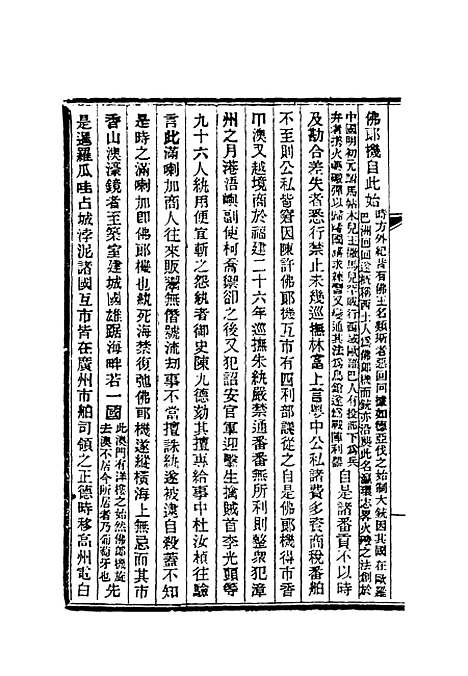 佛郎機自此始
職方外紀者有佛王名類斯者惡回回據如德亞伐之始制大銃因其國在歐羅
巴洲回回遂概稱西土人為佛郎機而銃亦沿襲此名瀛環志畧火礮之法創於
中國明初元駙馬帖木兒王撒馬兒罕威行西域歐羅巴人有投部下為兵
弁者攜火礮彈以歸諸國講求練習又變通其法為鳥鎗遂為戰陣利器
自是諸番貢不以時
及勘合差失者悉行禁止未幾巡撫林富上言粵中公私諸費多資商稅番舶
不至則公私皆窘因陳許佛郎機互市有四利部議從之自是佛郎機得市香
巾澳又越境商於福建二十六年巡撫朱紈嚴禁通番番無所利則整眾犯漳
州之月港浯嶼副使柯喬禦卻之後又犯詔安官軍迎擊生擒賊首李光頭等
九十六人紈用便宜斬之怨紈者御史陳九德劾其擅專給事中杜汝楨往驗
言此滿喇加商人往來販鬻無僭號流劫事不當擅誅紈遂被逮自殺蓋不知
是時之滿喇加即佛郎機也紈死海禁復弛佛郎機遂縱橫海上無忌而其市
香山澳濠鏡者至築室建城國雄踞海畔若一國
此澳門有洋樓之始然佛郎機旋
去澳不居今所居者乃葡萄牙也
先
是暹羅瓜哇占城浡泥諸國互市皆在廣州市舶司領之正德時移高州電白